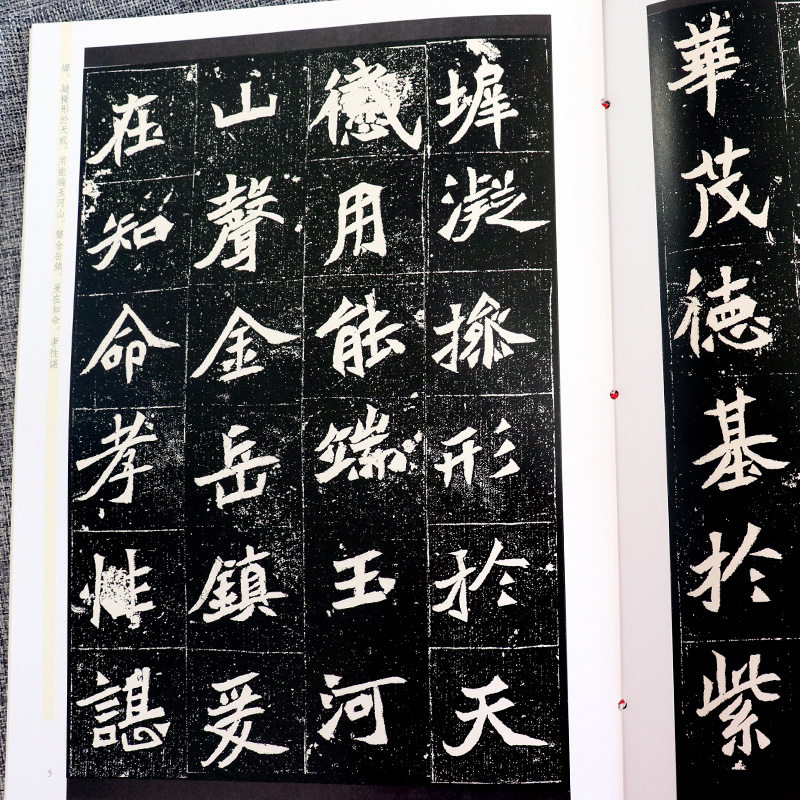 華茂德基於紫
墀凝操形於天
感用能端玉河
山聲金岳鎮爰
在知命孝性諶
墀，凝操形於天感。用能端玉河山，聲金岳鎮。爰在知命，孝性諶
5